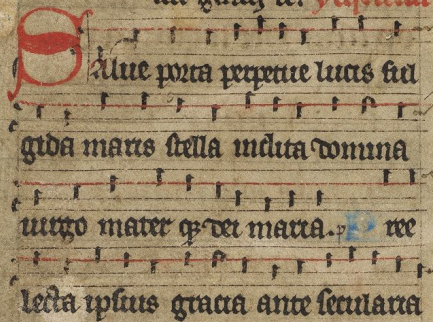 Salue porta perpetue lucis ful
gida maris stella inclita domina
uirgo mater qȝ dei maria. P ree
lecta ipsius gracia ante secularia